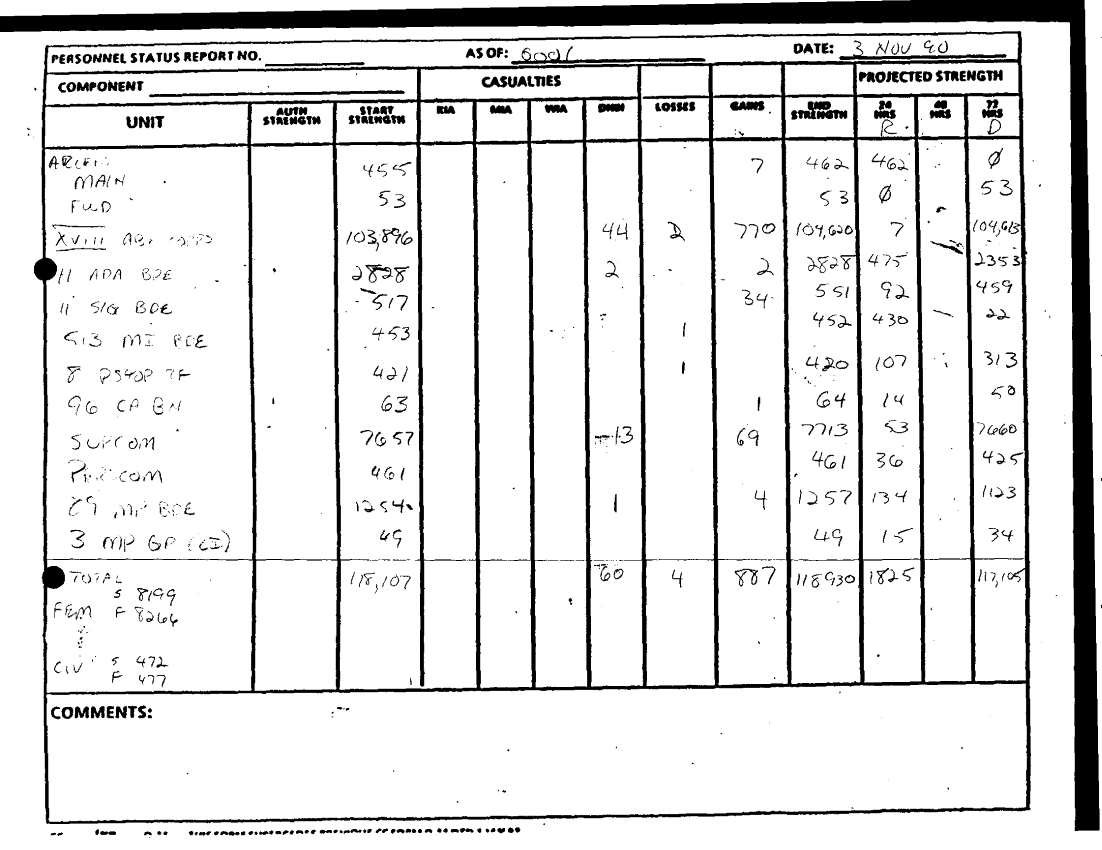 PERSONNEL STATUS REPORT NO. AS OF: DATE: 3 NOV 90
COMPONENT CASUALTIES PROJECTED STRENGTH
UNIT AUTH STRENGTH START STRENGTH KIA MIA WIA DNBI LOSSES GAINS END STRENGTH 24 HRS 48 HRS 72 HRS
R D
455 7 462 462 Ø
MAIN
FWD 53 53 Ø 53
XVIII 103,896 44 2 770 104,620 7 104,613
11 ADA BDE 2828 2 2 2828 475 2353
11 SIG BDE 517 34 551 92 459
513 MI BDE 453 1 452 430 22
8 PSYOP TF 421 1 420 107 313
96 CA BN 63 1 64 14 50
SUPCOM 7657 13 69 7713 53 7660
461 461 36 425
89 MP BDE 1254 1 4 1257 134 1123
3 MP GP (CI) 49 49 15 34
TOTAL 118,107 60 4 887 118930 1825 117,105
S 8199
FEM F 8266
CIV S 472
F 477
COMMENTS: